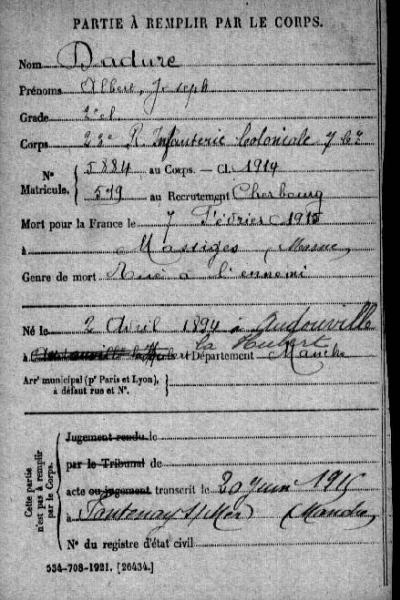 PARTIE À REMPLIR PAR LE CORPS.
Nom Dadure
Prénoms Albert, Joseph
Grade 2e cl
Corps 23e R. Infanterie Coloniale 7 Cie
N° Matricule. 5884 au Corps. — Cl. 1914
579 au Recrutement Cherbourg
Mort pour la France le 7 Février 1915
à Massiges Marne
Genre de mort Tué à l'ennemi
Né le 2 Avril 1894 à Audouville
la Hubert
à Département Manche
Arrt municipal (pr Paris et Lyon),
à défaut rue et N°.
Cette partie n'est pas à remplir par le Corps.
Jugement rendu le
par le Tribunal de
acte ou jugement transcrit le 20 juin 1915
à Fontenay s/Mer Manche
N° du registre d'état civil
534-708-1921. [26434.]